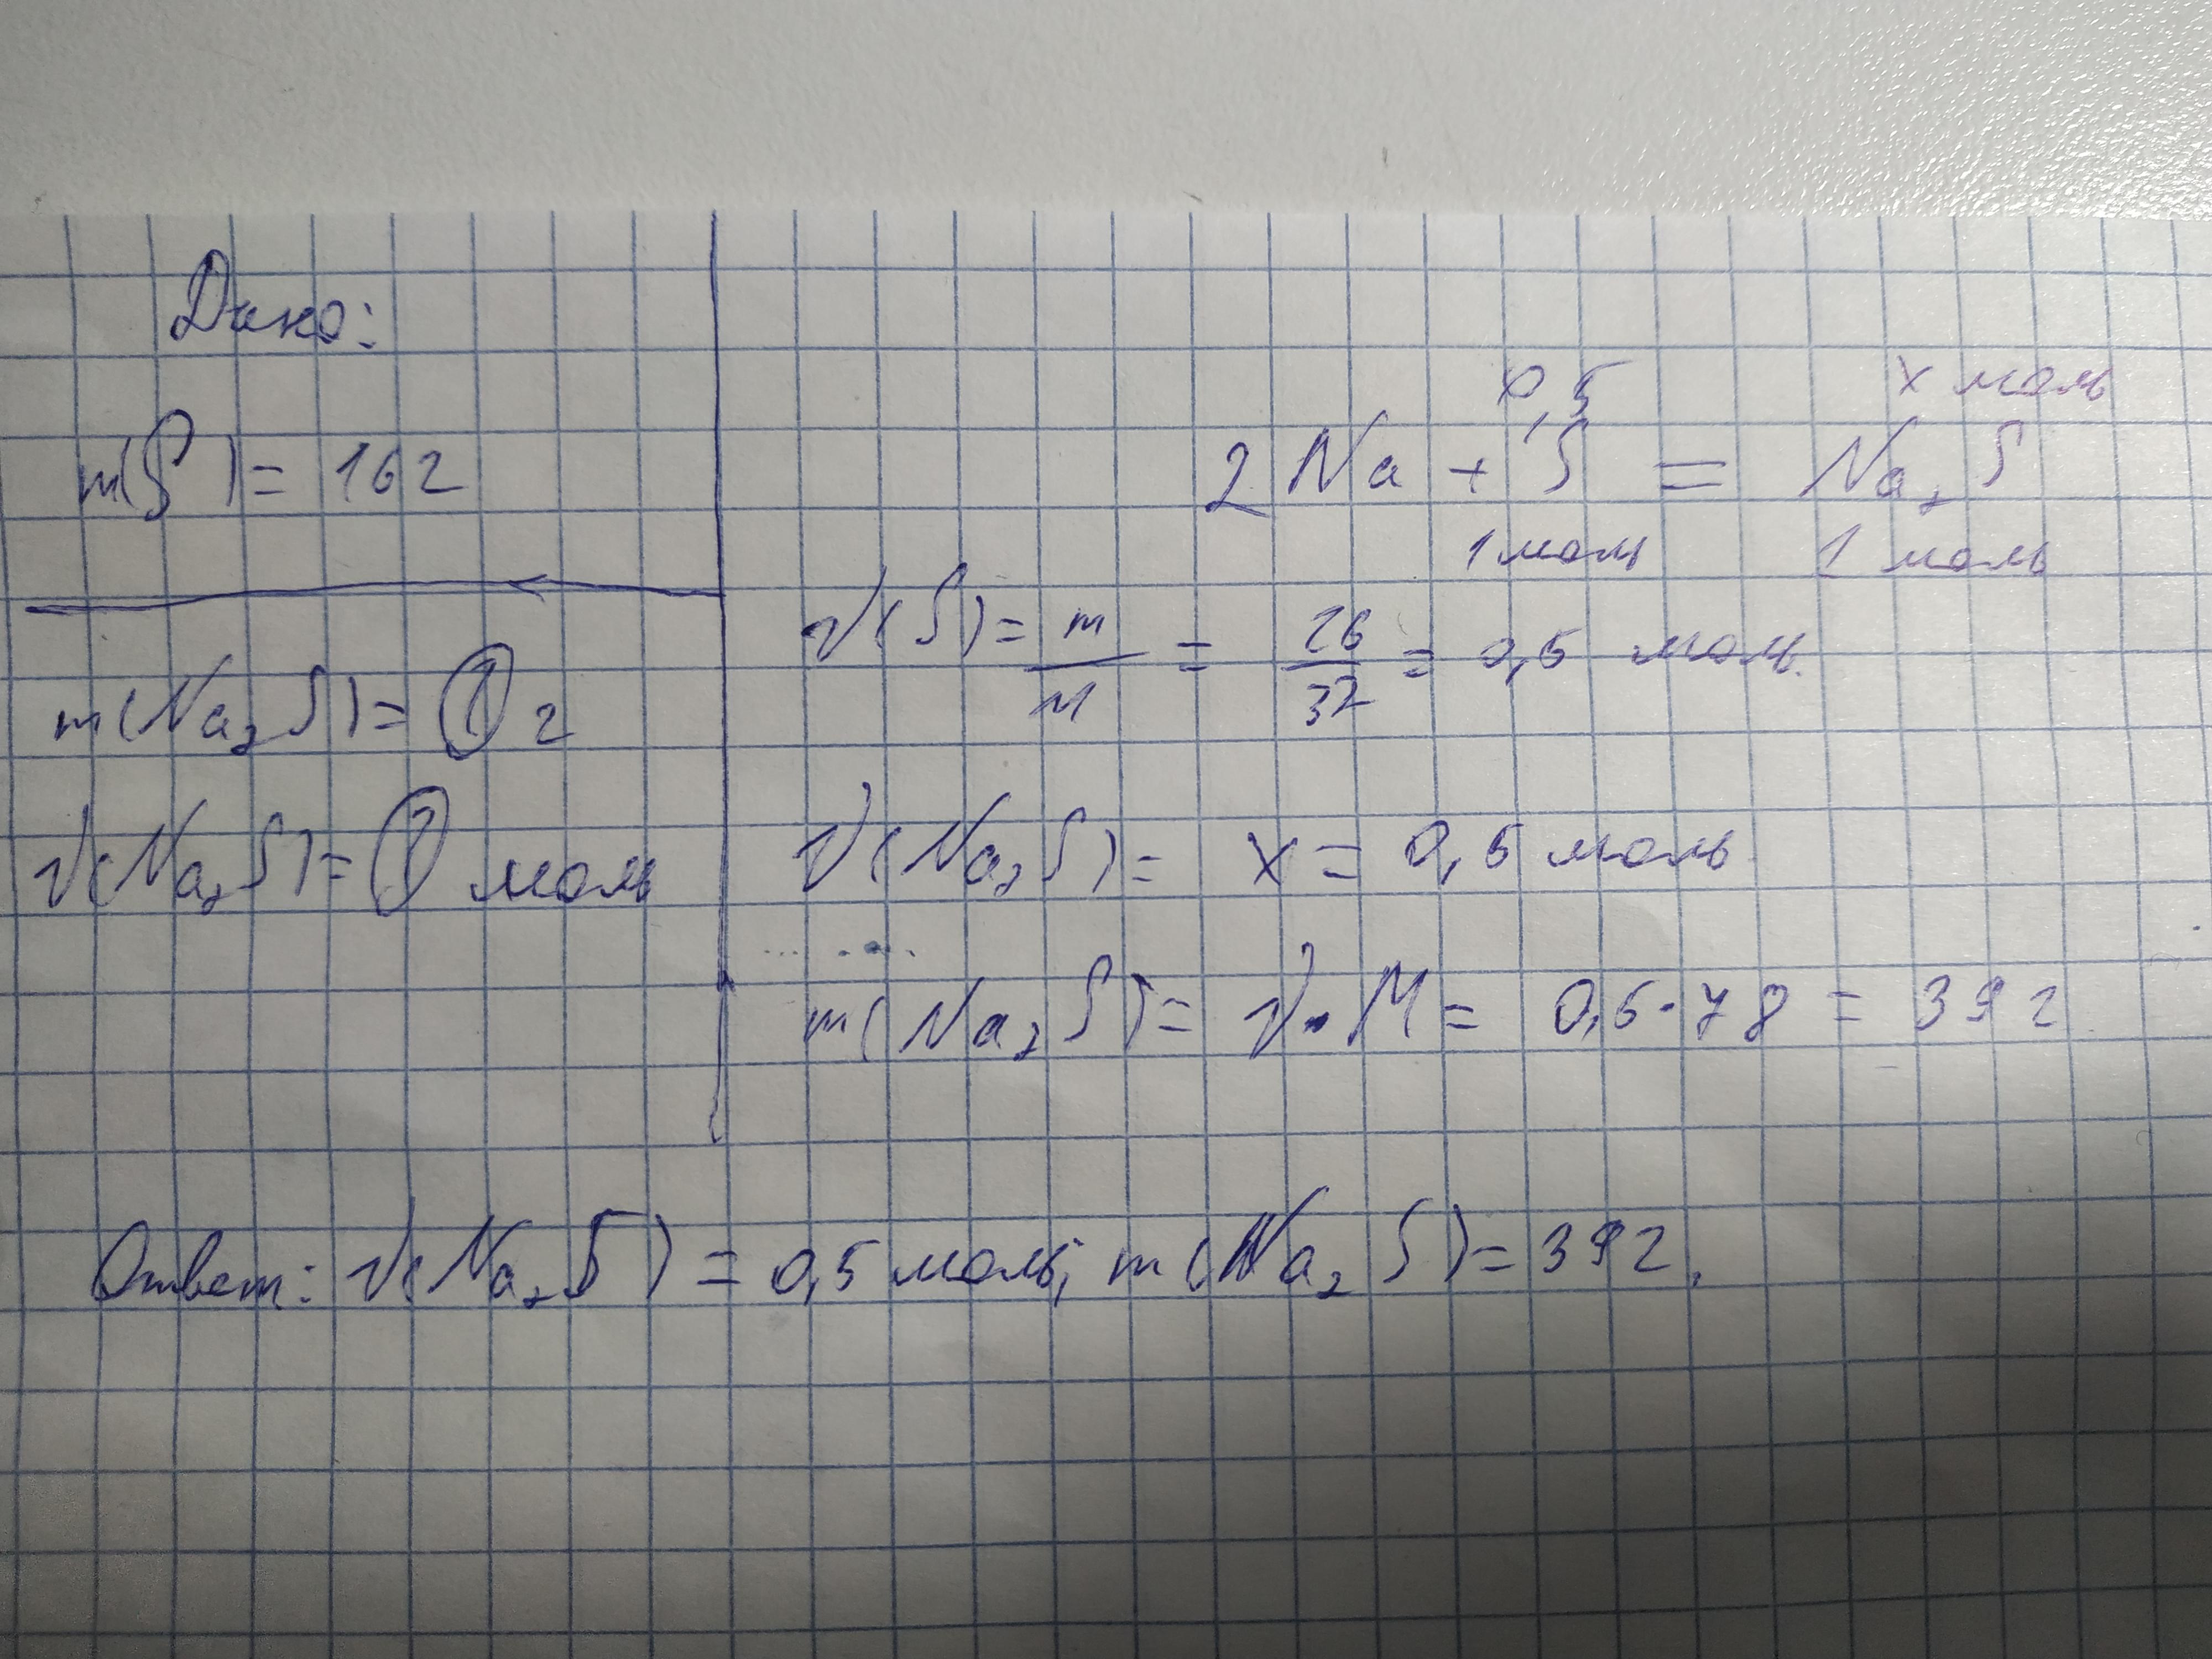 Дано:
m(S) = 16г
m(Na₂S) = ? г
ν(Na₂S) = ? моль
0,5 x моль
2Na + S = Na₂S
1 моль 1 моль
ν(S) = m/M = 16/32 = 0,5 моль.
ν(Na₂S) = x = 0,5 моль
m(Na₂S) = ν · M = 0,5 · 78 = 39г
Ответ: ν(Na₂S) = 0,5 моль; m(Na₂S) = 39г.